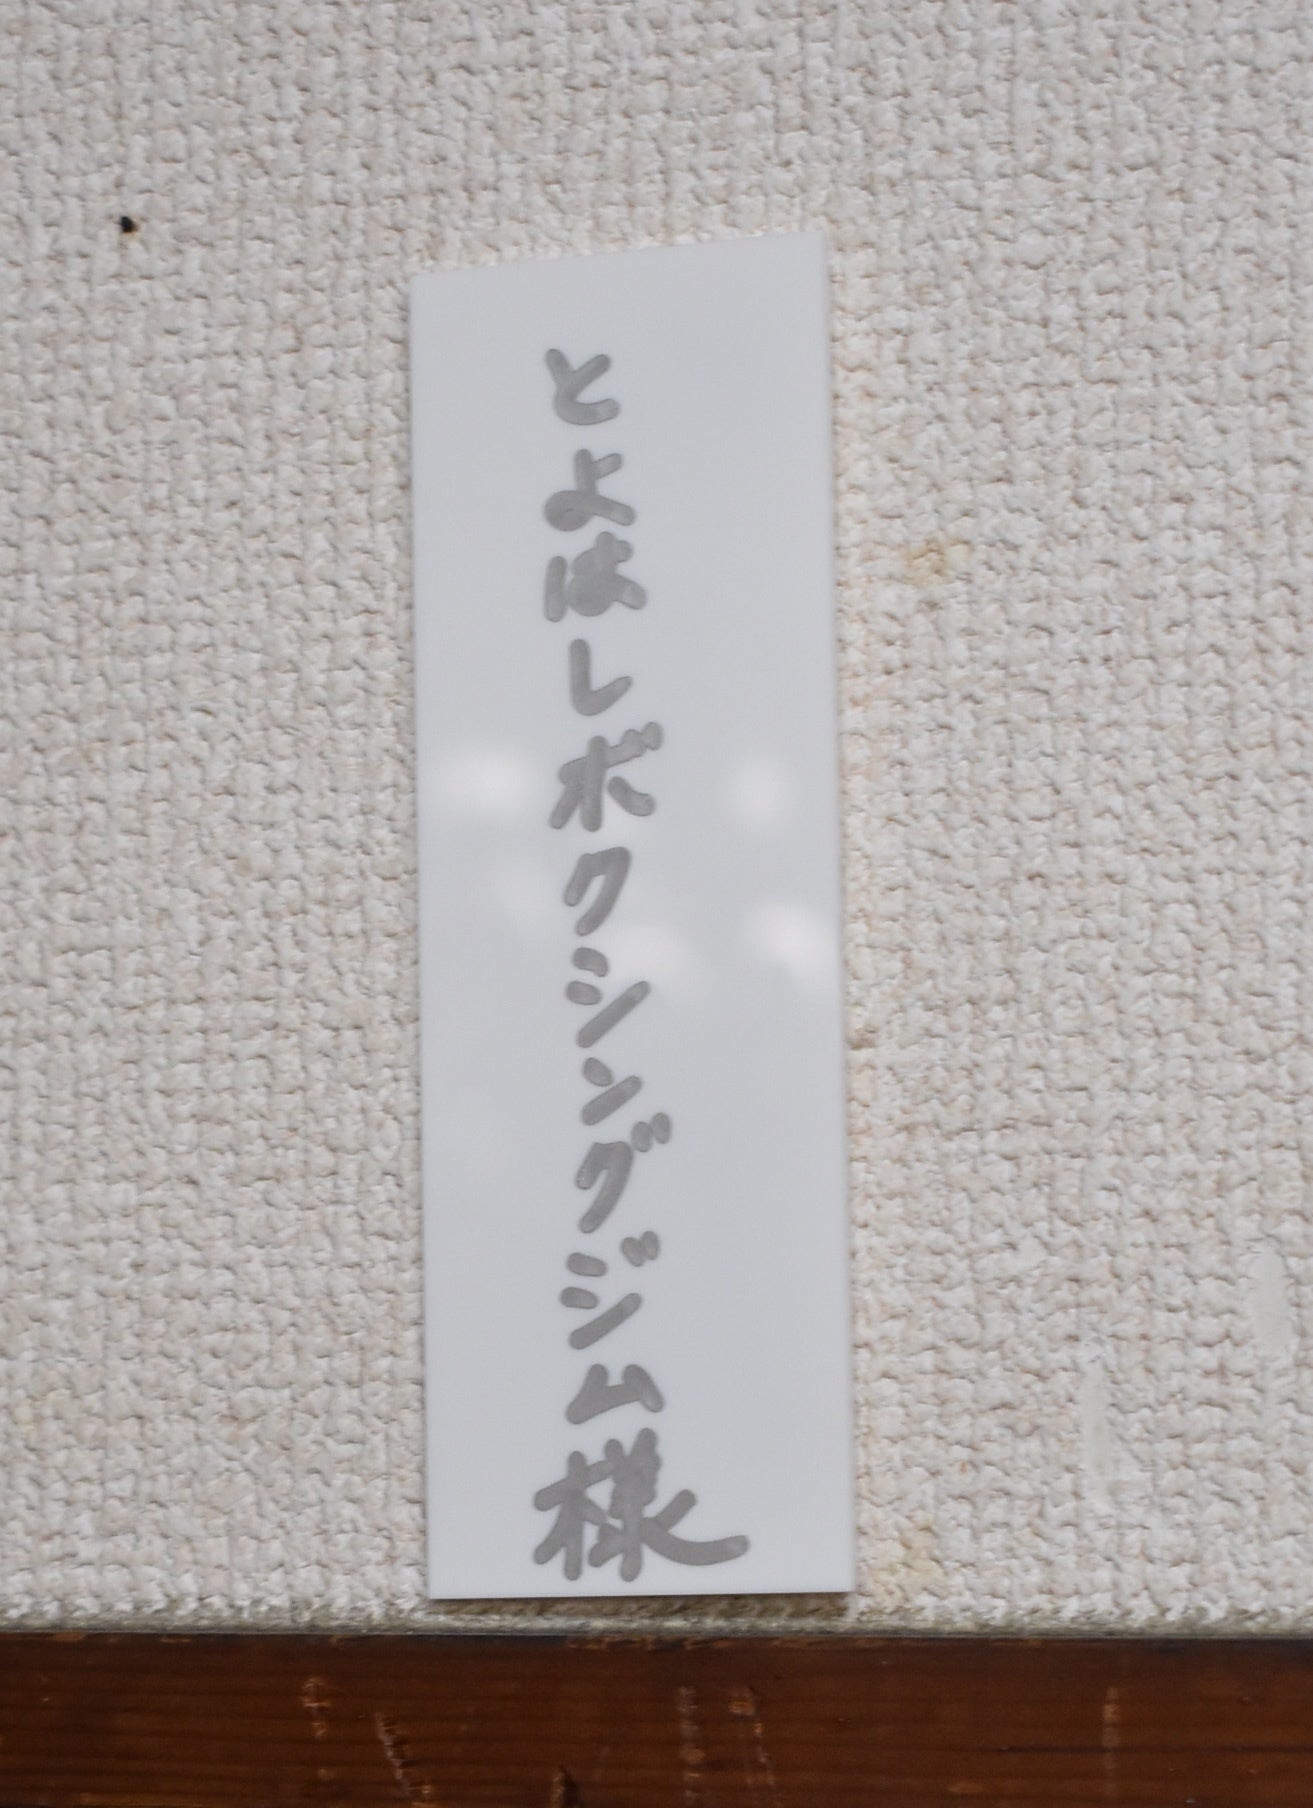 とよはしボクシングジム様